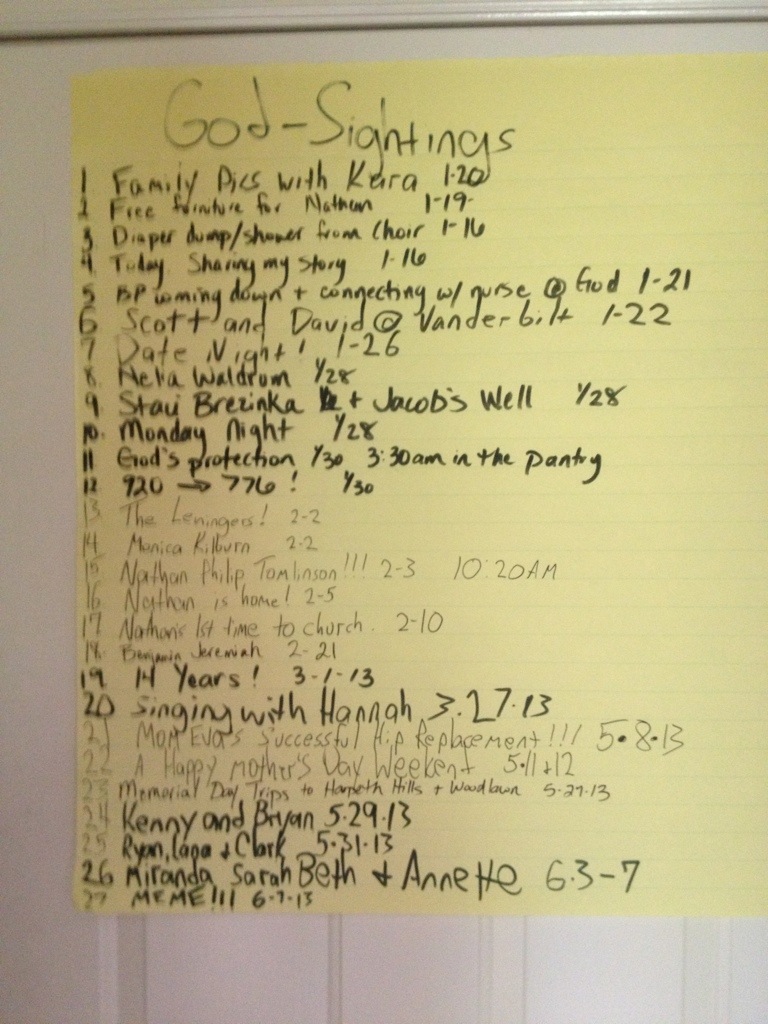 God-Sightings
1 Family Pics with Keira 1-20
2 Free furniture for Nathan 1-19
3 Diaper dump/shower from Choir 1-16
4 Today Sharing my story 1-16
5 BP coming down + connecting w/ nurse @ God 1-21
6 Scott and David @ Vanderbilt 1-22
7 Date Night! 1-26
8. Waldrom 1/28
9 Staci Brezinka + Jacob's Well 1/28
10. Monday Night 1/28
11 God's protection 1/30 3:30am in the pantry
12 920 → 776! 1/30
13 The Leningers! 2-2
14 Monica Kilburn 2-2
15 Nathan Philip Tomlinson!!! 2-3 10:20AM
16 Nathan is home! 2-5
17 Nathan's 1st time to church. 2-10
18. Benjamin Jeremiah 2-21
19 14 Years! 3-1-13
20 Singing with Hannah 3.27.13
21 Mom Eva's Successful Hip Replacement!!! 5.8.13
22 A Happy Mother's Day Weekend 5.11+12
23 Memorial Day Trips to Harpeth Hills + Woodlawn 5.27.13
24 Kenny and Bryan 5.29.13
25 Ryan, Lana + Clark 5.31.13
26 Miranda, Sarah Beth + Annette 6.3-7
27 MEME!!! 6-7-13